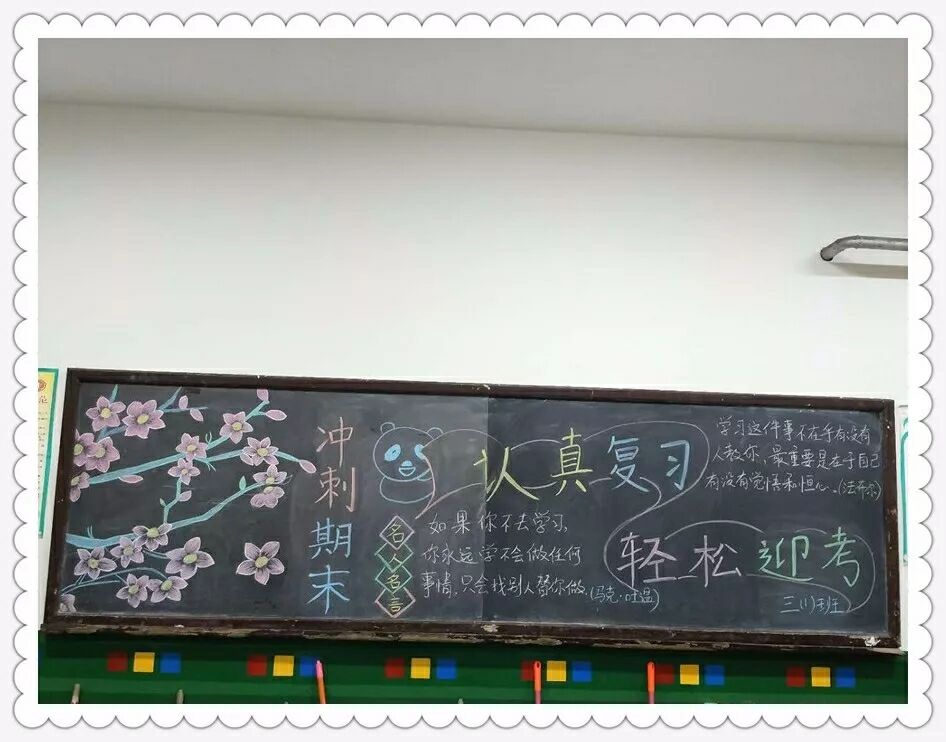 冲刺期末
认真复习
轻松迎考
名人名言
如果你不去学习,
你永远学不会做任何
事情,只会找别人替你做。(马克·吐温)
学习这件事不在乎有没有
人教你,最重要是在于自己
有没有觉悟和恒心。(法布尔)
三(1)班